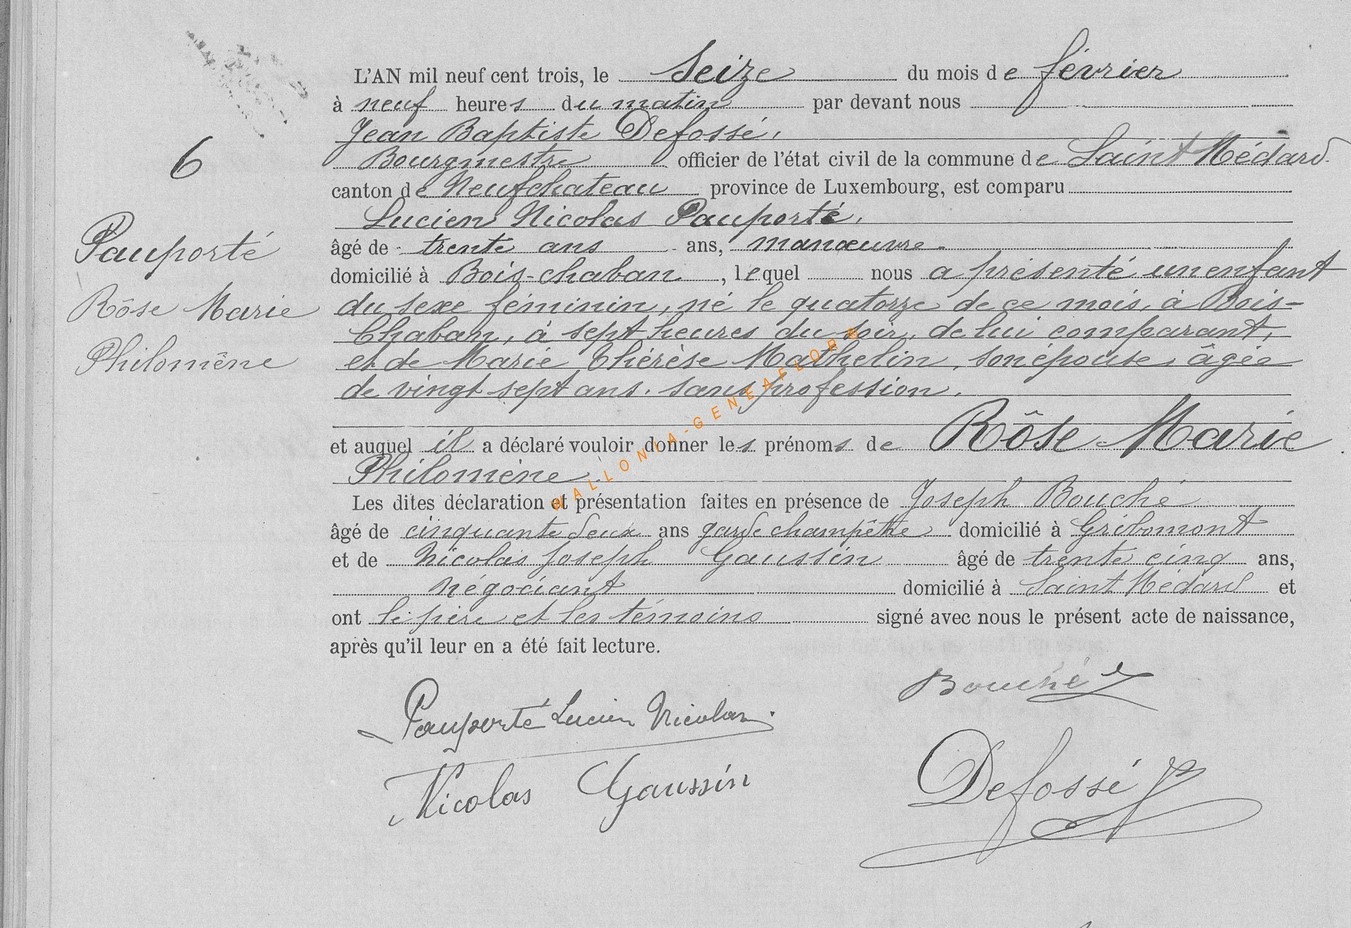 L'AN mil neuf cent trois, le seize du mois de février
à neuf heures du matin par devant nous
Jean Baptiste Defossé,
Bourgmestre officier de l'état civil de la commune de Saint Médard
6
canton de Neufchateau province de Luxembourg, est comparu
Lucien Nicolas Pauporté,
Pauporté
âgé de trente ans ans, manœuvre.
domicilié à Bois-chaban, lequel nous a présenté un enfant
Rôse Marie
du sexe féminin, né le quatorze de ce mois, à Bois-
Chaban, à sept heures du soir, de lui comparant,
Philomène
et de Marie Thérèse Mathelin, son épouse, âgée
de vingt-sept ans. sans profession.
et auquel il a déclaré vouloir donner les prénoms de Rôse-Marie
Philomène
Les dites déclaration et présentation faites en présence de Joseph Bouché
âgé de cinquante deux ans garde champêtre domicilié à Gribomont
et de Nicolas Joseph Gaussin âgé de trente cinq ans,
négociant domicilié à Saint Médard et
ont le père et les témoins signé avec nous le présent acte de naissance,
après qu'il leur en a été fait lecture.
Bouché
Pauporté Lucien Nicolas.
Nicolas Gaussin
Defossé
WALLONIA-GENEAFLORE